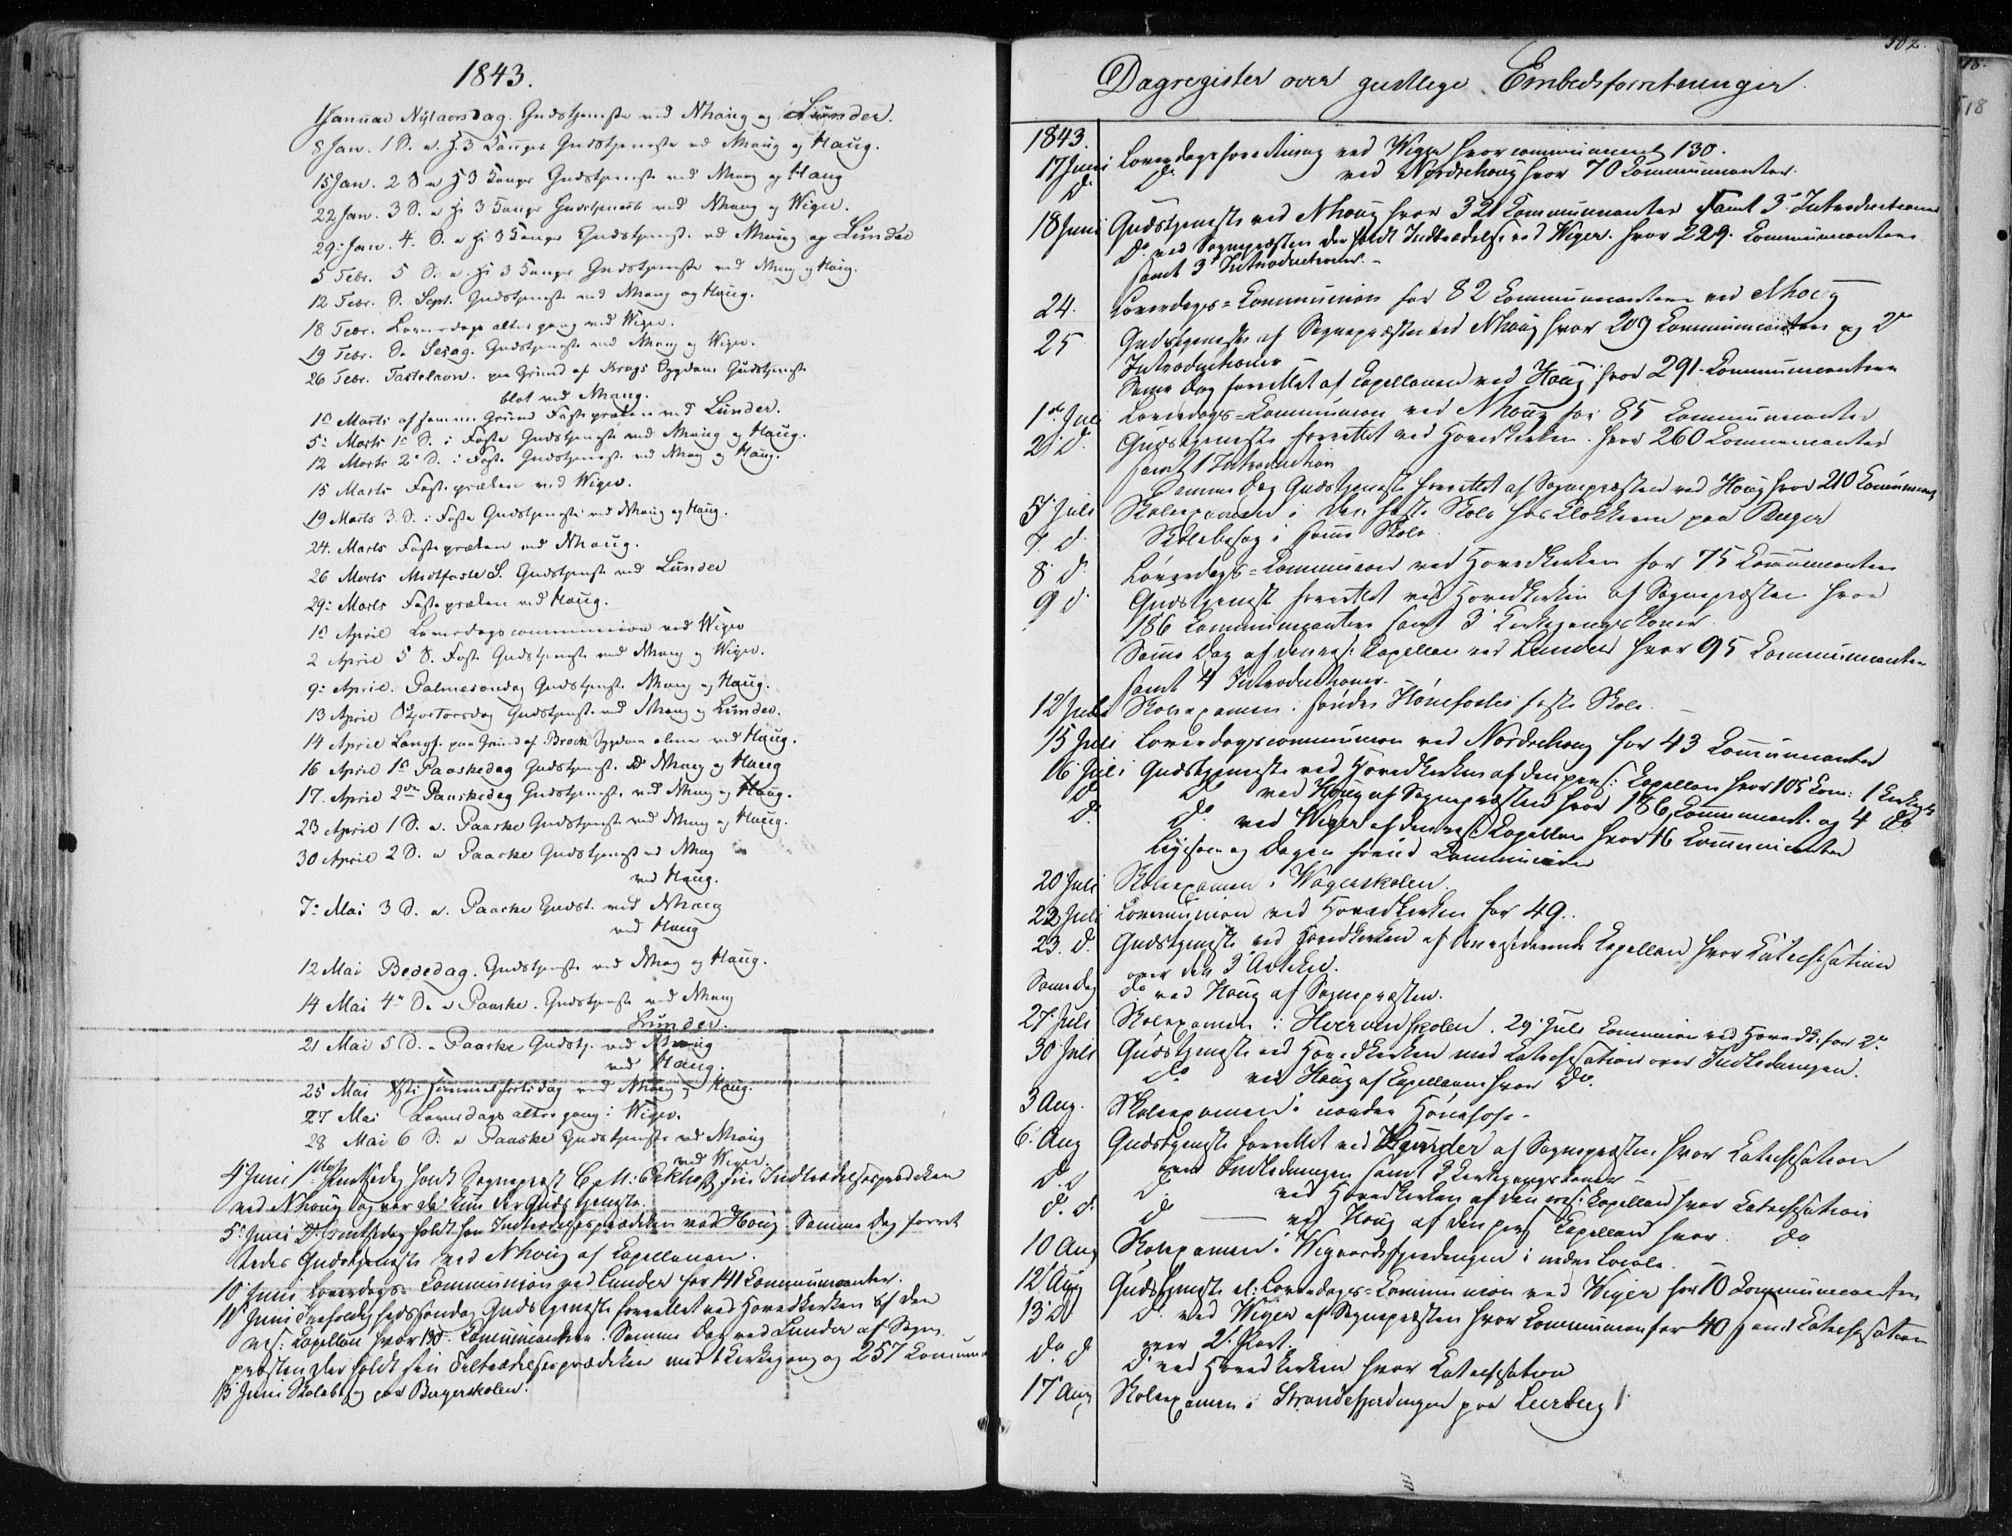 1843.
1 Januar Nytaarsdag. Gudstjeneste ved Nhaug og Lunder.
8 Jan. 1 S. e. H 3 Konger Gudstjeneste ved Nhaug og Haug.
15 Jan. 2 S e H 3 Konger Gudstjeneste ved Nhaug og Haug
22 Jan. 3 S. e H 3 Konger Gudstjeneste ved Nhaug og Wiger.
29: Jan. 4. S. e H 3 Konger Gudstjeneste ved Nhaug og Lunder
5 Febr. 5 S. e. H 3 Konger Gudstjeneste ved Nhaug og Haug.
12 Febr. S. Sept. Gudstjeneste ved Nhaug og Haug.
18 Febr. Løverdags altergang ved Wiger.
19 Febr. S. Sexag. Gudstjeneste ved Nhaug og Wiger.
26 Febr. Fastelavn. paa Grund af Krags Sygdom Gudstjeneste
blot ved Nhaug.
1ste Marts af samme Grund Fastepræken ved Lunder.
5: Marts 1ste S. i Faste Gudstjeneste ved Nhaug og Haug.
12 Marts 2d S. i Faste Gudstjeneste ved Nhaug og Haug.
15 Marts Fastepræken ved Wiger.
19 Marts 3 S. i Faste Gudstjeneste ved Nhaug og Haug.
24. Marts Fastepræken ved Nhaug.
26 Marts Midtfaste S. Gudstjeneste ved Lunder
29: Marts Fastepræken ved Haug.
1ste April Løverdagscommunion ved Wiger
2 April 5 S. Faste Gudstjeneste ved Nhaug og Wiger.
9: April. Palmesøndag Gudstjeneste Nhaug og Haug.
13 April Skjærtorsdag Gudstjeneste ved Nhaug og Lunder.
14 April Langf. paa Grund af Brock Sygdom alene ved Haug.
16 April 1ste Paaskedag Gudstjeneste ved Nhaug og Haug
17. April 2den Paaskedag Gudstjeneste ved Nhaug og Haug.
23 April 1 S. e. Paaske Gudstjeneste ved Nhaug og Haug.
30 April 2 S. e Paaske Gudstjeneste ved Nhaug
ved Haug.
7: Mai 3 S. e. Paaske Gudst. ved Nhaug
ved Haug
12 Mai Bededag. Gudstjeneste ved Nhaug og Haug.
14 Mai 4de S. e Paaske. Gudstjeneste ved Nhaug
Lunder.
21 Mai 5 S. e Paaske Gudstj. ved Nhaug
ved Haug.
25 Mai Kristi Himmelfartsdag ved Nhaug og Haug.
27 Mai Løverdags altergang i Wiger.
28 Mai 6 S: e Paaske Gudstjeneste ved Nhaug
ved Wiger.
4 Juni 1ste Pintsedag holdt Sognepræst sin Indtrædelsesprædiken
ved Nhoug og var der Gudstjeneste.
5 Juni 2. Pintsedag holdt han Indtrædelsesprædiken ved Houg. Samme Dag forret
tedes Gudstjeneste ved Nhoug af Capellanen.
10 Juni Løverdags-Communion ved Lunder for 141 Communicanter.
11 Juni Trefoldighedssøndag Gudstjeneste forrettet ved Hovedkirken af den
res: Capellan hvor 130 Communicanter. Samme Dag ved Lunder af Sogne-
præsten der holdt sin Tiltrædelsesprædiken med 1 Kirkegang og 257 Commun
13 Juni Skolebesøg paa Bergerskolen.
Dagregister over geistlige Embedsforretninger.
1843.
17 Juni Løverdagsforretning ved Wiger hvor communicert 130.
D. Do ved Nordrehoug hvor 70 Communicanter.
18 Juni Gudstjeneste ved Nhoug hvor 321 Communicanter samt 3 Introductioner
D. ved Sognepræsten der holdt Indtrædelse ved Wiger. hvor 229. Communicanter
samt 3 Introductioner. -
24. Løverdags-Communion for 82 Communicanter ved Nhoug
25 Gudstjeneste af Sognepræsten ved Nhoug hvor 209 Communicanter og 2
Introductioner
Samme Dag forrettet af Capellanen ved Houg hvor 291 Communicanter
1ste Juli Løverdags-Communion ved Nhoug for 85 Communicanter
2 d. Gudstjeneste forrettet ved Hovedkirken. hvor 260 Communicanter
samt 1 Introduction
Samme Dag Gudstjeneste forrettet af Sognepræsten ved Houg hvor 210 Communic
5 Juli Skoleexamen i den faste Skole hos Klokkeren paa Berger
7. d. Skolebesøg i samme Skole.
8 d. Løverdags-Communion ved Hovedkirken for 75 Communicanter
9 d. Gudstjeneste forrettet ved Hovedkirken af Sognepræsten hvor
186 Communicanter samt 3 Kirkegangskoner.
Samme Dag af den res: Capellan ved Lunder hvor 95 Communicanter
samt 4 Introductioner.
12 Juli Skoleexamen i søndre Hønefosses faste Skole.
15 Juli Løverdagscommunion ved Nordrehoug for 43 Communicanter
16 Juli Gudstjeneste ved Hovedkirken af den pers: Capellan hvor 105 Com: 1
D Do ved Houg af Sognepræsten hvor 186 Communicant. og 4 do
D. Do ved Wiger af den res: Capellan hvor 16 Communicanter
ligesom og Dagen forud Communion
20 Juli Skoleexamen i Wagerskolen
22 Juli Communion ved Hovedkirken for 49.
23. d. Gudstjeneste ved Hovedkirken af den residerende Capellan hvor Katechisation
over den 3 Artikel.
Samme Dag Do ved Houg af Sognepræsten.
27 Juli Skoleexamen i Hverven skolen. 29 Juli Communion ved Hovedk. for 2.
30 Juli Gudstjeneste ved Hovedkirken med Katechisation over Indledningen.
Do ved Houg af Capellanen hvor Do.
3 Aug. Skoleexamen i nordre Hønefos.
6. Aug Gudstjeneste forrettet ved Lunder af Sognepræsten hvor Katechisation
over Indledningen samt 3 Kirkegangskoner
D. d Do ved Hovedkirken af den res: Capellan hvor Katechisation
D. d. Do ved Houg af den pers Capellan hvor. Do
10 Aug Skoleexamen i Wegaardsfjerdingen i nedre Locale.
12 Aug Gudstjeneste el: Løverdags-Communion ved Wiger for 10 Communicanter
13 d D. ved Wiger af Sognepræsten hvor Communion for 40 samt Katechisation
over 2. Part.
D. d D. ved Hovedkirken hvor Katechisation
17 Aug Skoleexamen i Strandefjerdingen paa Leerberg